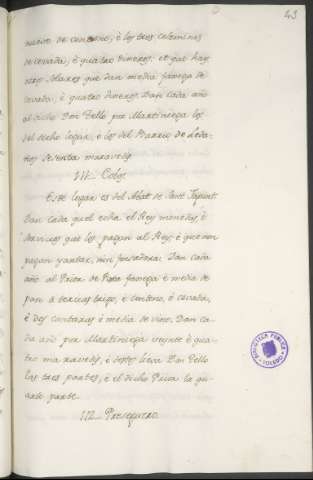 43
nueve de centeno, è los tres celemines
de cevada, è quatro dineros, et que hay
otros Solares que dan media fanega de
cevada, è quatro dineros. Dan cada año
al dicho Don Tello por Martiniega los
del dicho logar, è los del Barrio de
sesenta maravedis
Este logar es del Abat de Sant
Dan cada que el Rey monedas, è
servicios que los pagan al Rey, è que non
pagan yantar, nin fonsadera. Dan cada
año al Prior de fanega è media de
pan à tercias trigo, è centeno, è cevada,
è dos cantaras è media de vino. Dan ca-
da año por Martiniega veynte è qua-
tro maravedis, è destos lieva Don Tello
las tres partes, è el dicho Prior la qu-
arta parte.
BIBLIOTECA PUBLICA
TOLEDO